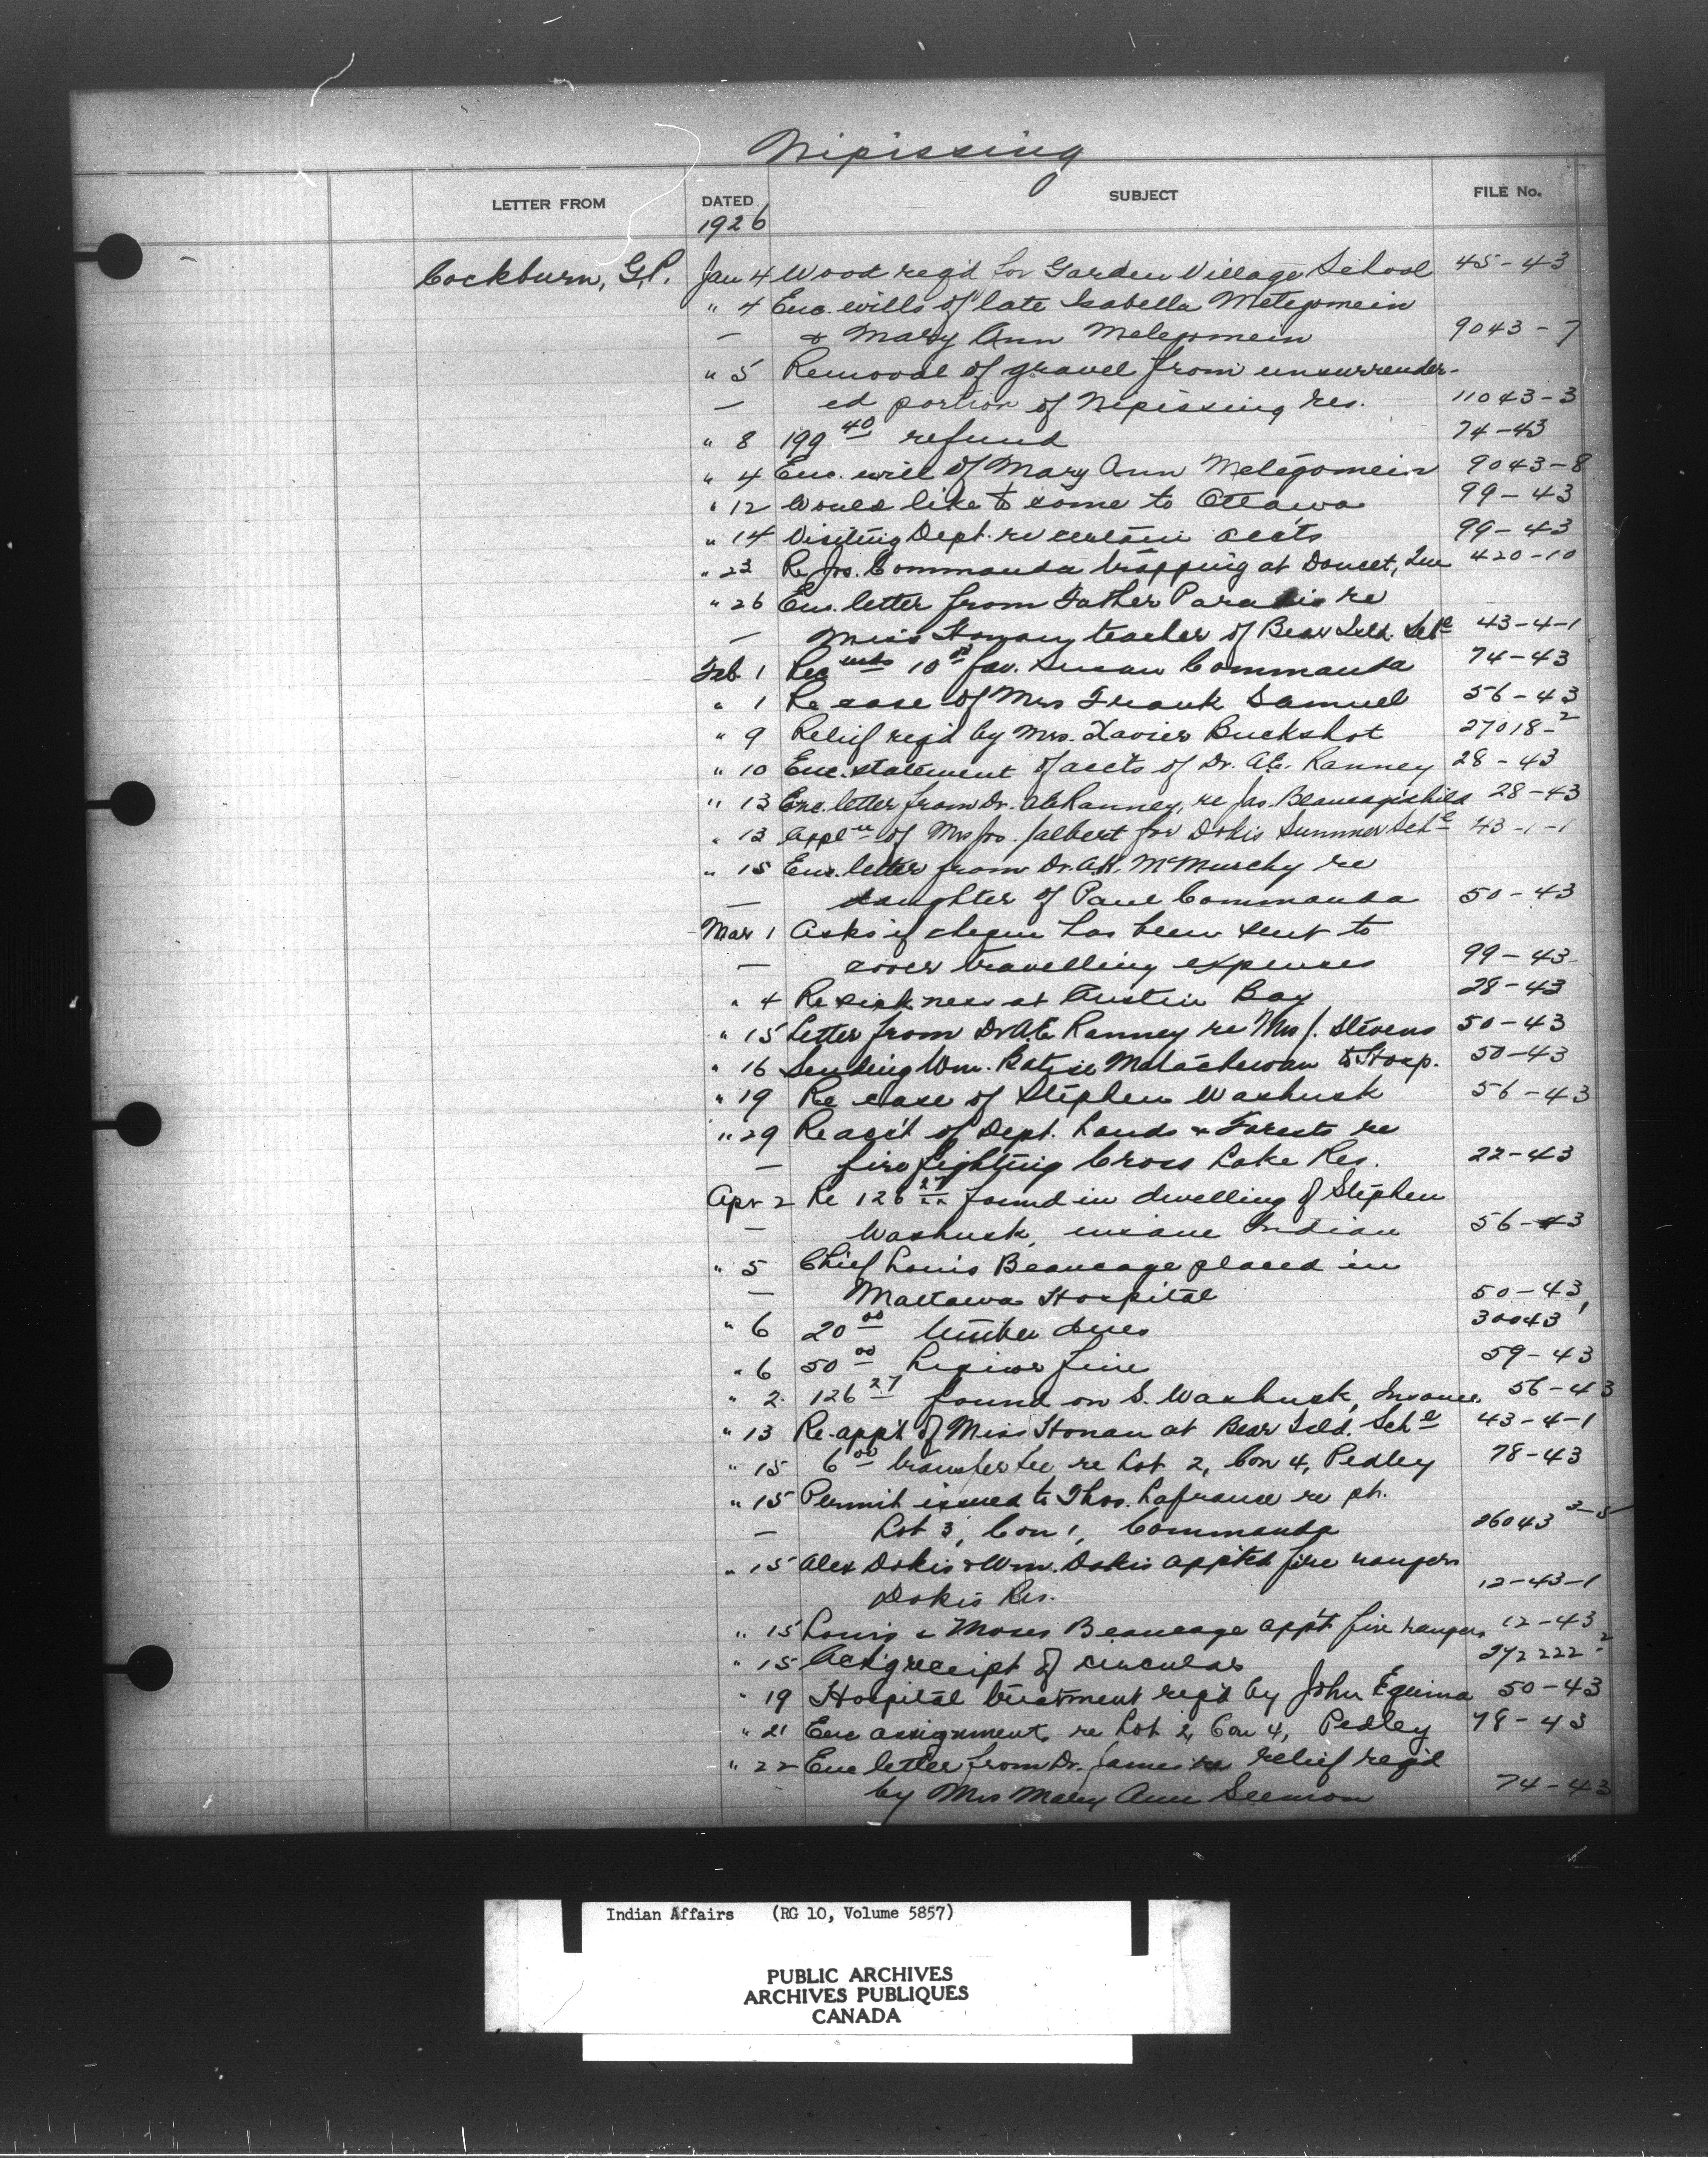 Nipissing
LETTER FROM DATED SUBJECT FILE No.
1926
Cockburn, G.P. Jan 4 Wood reqd for Garden Village School 45-43
" 4 Enc. wills of late Isabella Metegomein
— & Mary Ann Metegomein 9043-7
" 5 Removal of gravel from unsurrender-
— ed portion of Nipissing Res. 11043-3
" 8 199 40 refund 74-43
" 4 Enc. will of Mary Ann Metegomein 9043-8
" 12 Would like to come to Ottawa 99-43
" 14 Visiting Dept. re certain accts 99-43
" 23 Re Jos. Commanda trapping at Doucet, Que 420-10
" 26 Enc. letter from Father Paradis re
— Miss Honan, teacher of Bear Isld. Schl 43-4-1
Feb 1 10 fav. Susan Commanda 74-43
" 1 Re case of Mrs Frank Samuel 56-43
" 9 Relief reqd by Mrs. Xavier Buckshot 27018-2
" 10 Enc. statement of accts of Dr. A.E. Ranney 28-43
" 13 Enc. letter from Dr. A.E. Ranney, re Jas. Beaucage's child 28-43
" 13 Applcn of Mrs Jos. Jalbert for Dokis Summer Schl 43-1-1
" 15 Enc. letter from Dr. A.H. McMurchy re
— daughter of Paul Commanda 50-43
Mar 1 Asks if cheque has been sent to
— cover travelling expenses 99-43
" 4 Re sickness at Austin Bay 28-43
" 15 Letter from Dr A.E. Ranney re Mrs J. Stevens 50-43
" 16 Sending Wm. Batise Matachewan to Hosp. 50-43
" 19 Re case of Stephen Washusk 56-43
" 29 Re acc't of Dept. Lands & Forests re
— fire fighting Cross Lake Res. 22-43
Apr 2 Re 126 27/xx found in dwelling of Stephen
— Washusk, insane Indian 56-43
" 5 Chief Louis Beaucage placed in
— Mattawa Hospital 50-43
" 6 20 00 timber dues 30043 1
" 6 50 00 Liquor fine 59-43
" 2 126 27 found on S. Washusk, Insane. 56-43
" 13 Re-appt of Miss Honan at Bear Isld. Schl 43-4-1
" 15 6 00 transfer fee re Lot 2, Con 4, Pedley 78-43
" 15 Permit issued to Thos. Lafrance re pt.
— Lot 3, Con 1, Commanda 26043 3-5
" 15 Alex Dokis & Wm. Dokis appted fire rangers
Dokis Res. 12-43-1
" 15 Louis & Moses Beaucage appt fire rangers 12-43
" 15 Ack'g receipt of circular 272222-2
" 19 Hospital treatment reqd by John Equima 50-43
" 21 Enc assignment re Lot 2, Con 4, Pedley 78-43
" 22 Enc letter from Dr. James re relief reqd
by Mrs Mary Ann Seemon 74-43
Indian Affairs (RG 10, Volume 5857)
PUBLIC ARCHIVES
ARCHIVES PUBLIQUES
CANADA